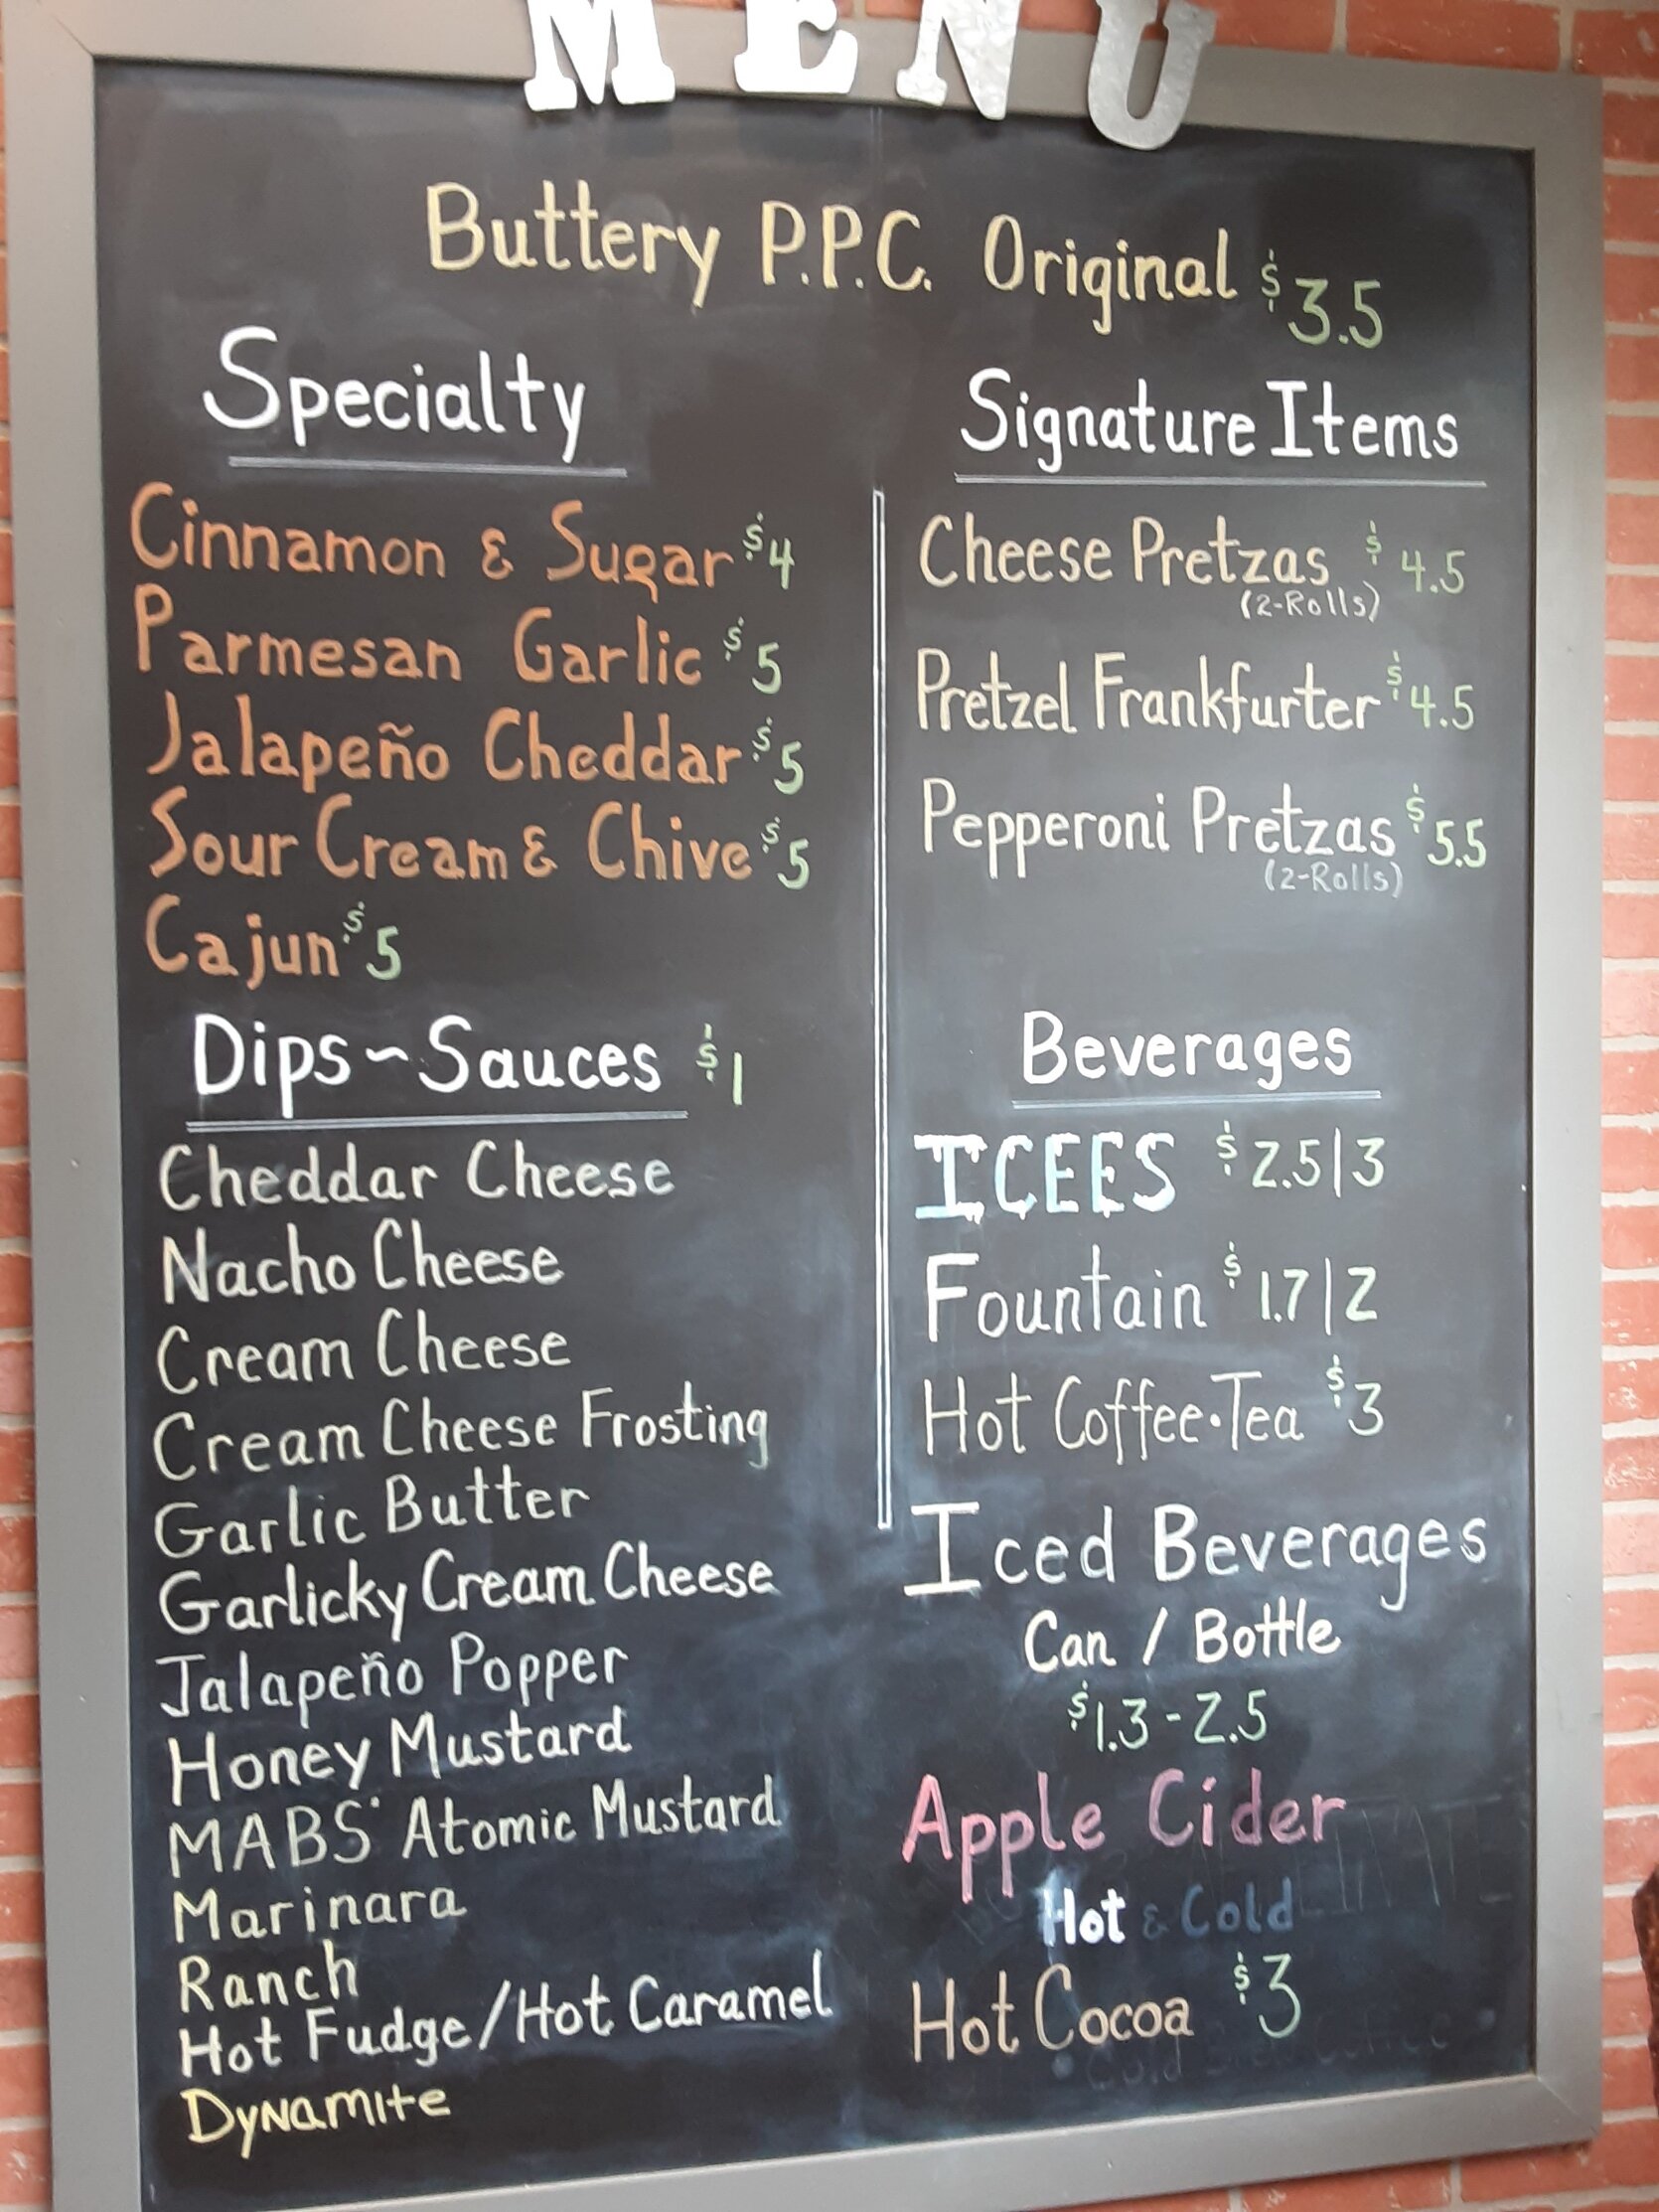 MENU
Buttery P.P.C. Original $3.5
Specialty
Cinnamon & Sugar $4
Parmesan Garlic $5
Jalapeño Cheddar $5
Sour Cream & Chive $5
Cajun $5
Dips~Sauces $1
Cheddar Cheese
Nacho Cheese
Cream Cheese
Cream Cheese Frosting
Garlic Butter
Garlicky Cream Cheese
Jalapeño Popper
Honey Mustard
MABS' Atomic Mustard
Marinara
Ranch
Hot Fudge/Hot Caramel
Dynamite
Signature Items
Cheese Pretzas $4.5
(2-Rolls)
Pretzel Frankfurter $4.5
Pepperoni Pretzas $5.5
(2-Rolls)
Beverages
ICEES $2.5|3
Fountain $1.7|2
Hot Coffee·Tea $3
Iced Beverages
Can / Bottle
$1.3-2.5
Apple Cider
Hot & Cold
Hot Cocoa $3